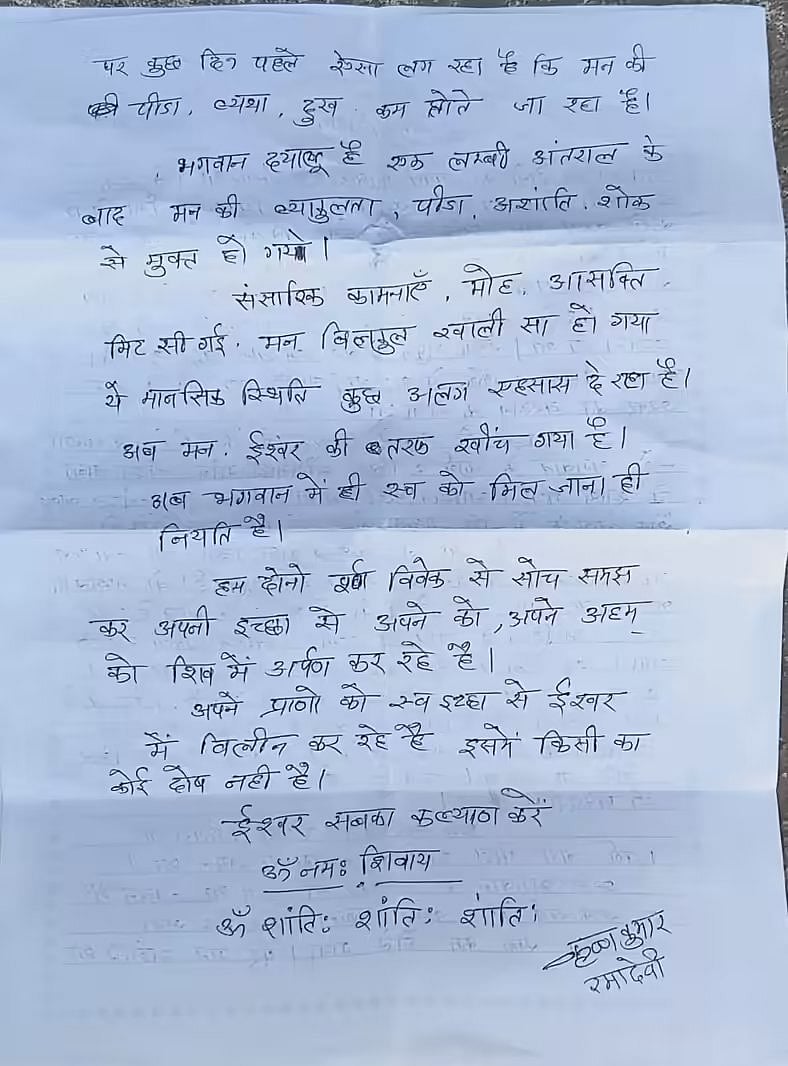 पर कुछ दिन पहले ऐसा लग रहा है कि मन की
पीडा, व्यथा, दुख कम होते जा रहा है।
भगवान दयालू है एक लम्बी अंतराल के
बाद मन की व्याकुलता, पीडा, अशांति, शोक
से मुक्त हो गये।
संसारिक कामनाएँ, मोह, आसक्ति
मिट सी गई, मन बिलकुल खाली सा हो गया
ये मानसिक स्थिति कुछ अलग एहसास दे रहा है।
अब मन ईश्वर की तरफ खींच गया है।
अब भगवान में ही स्व को मिल जाना ही
नियति है।
हम दोनो विवेक से सोच समझ
कर अपनी इच्छा से अपने को, अपने अहम्
को शिव में अर्पण कर रहे है।
अपने प्राणो को स्व इच्छा से ईश्वर
में विलीन कर रहे है इसमें किसी का
कोई दोष नही है।
ईश्वर सबका कल्याण करें
ॐ नमः शिवाय
ॐ शांतिः शांतिः शांतिः
कुमार
रमादेवी